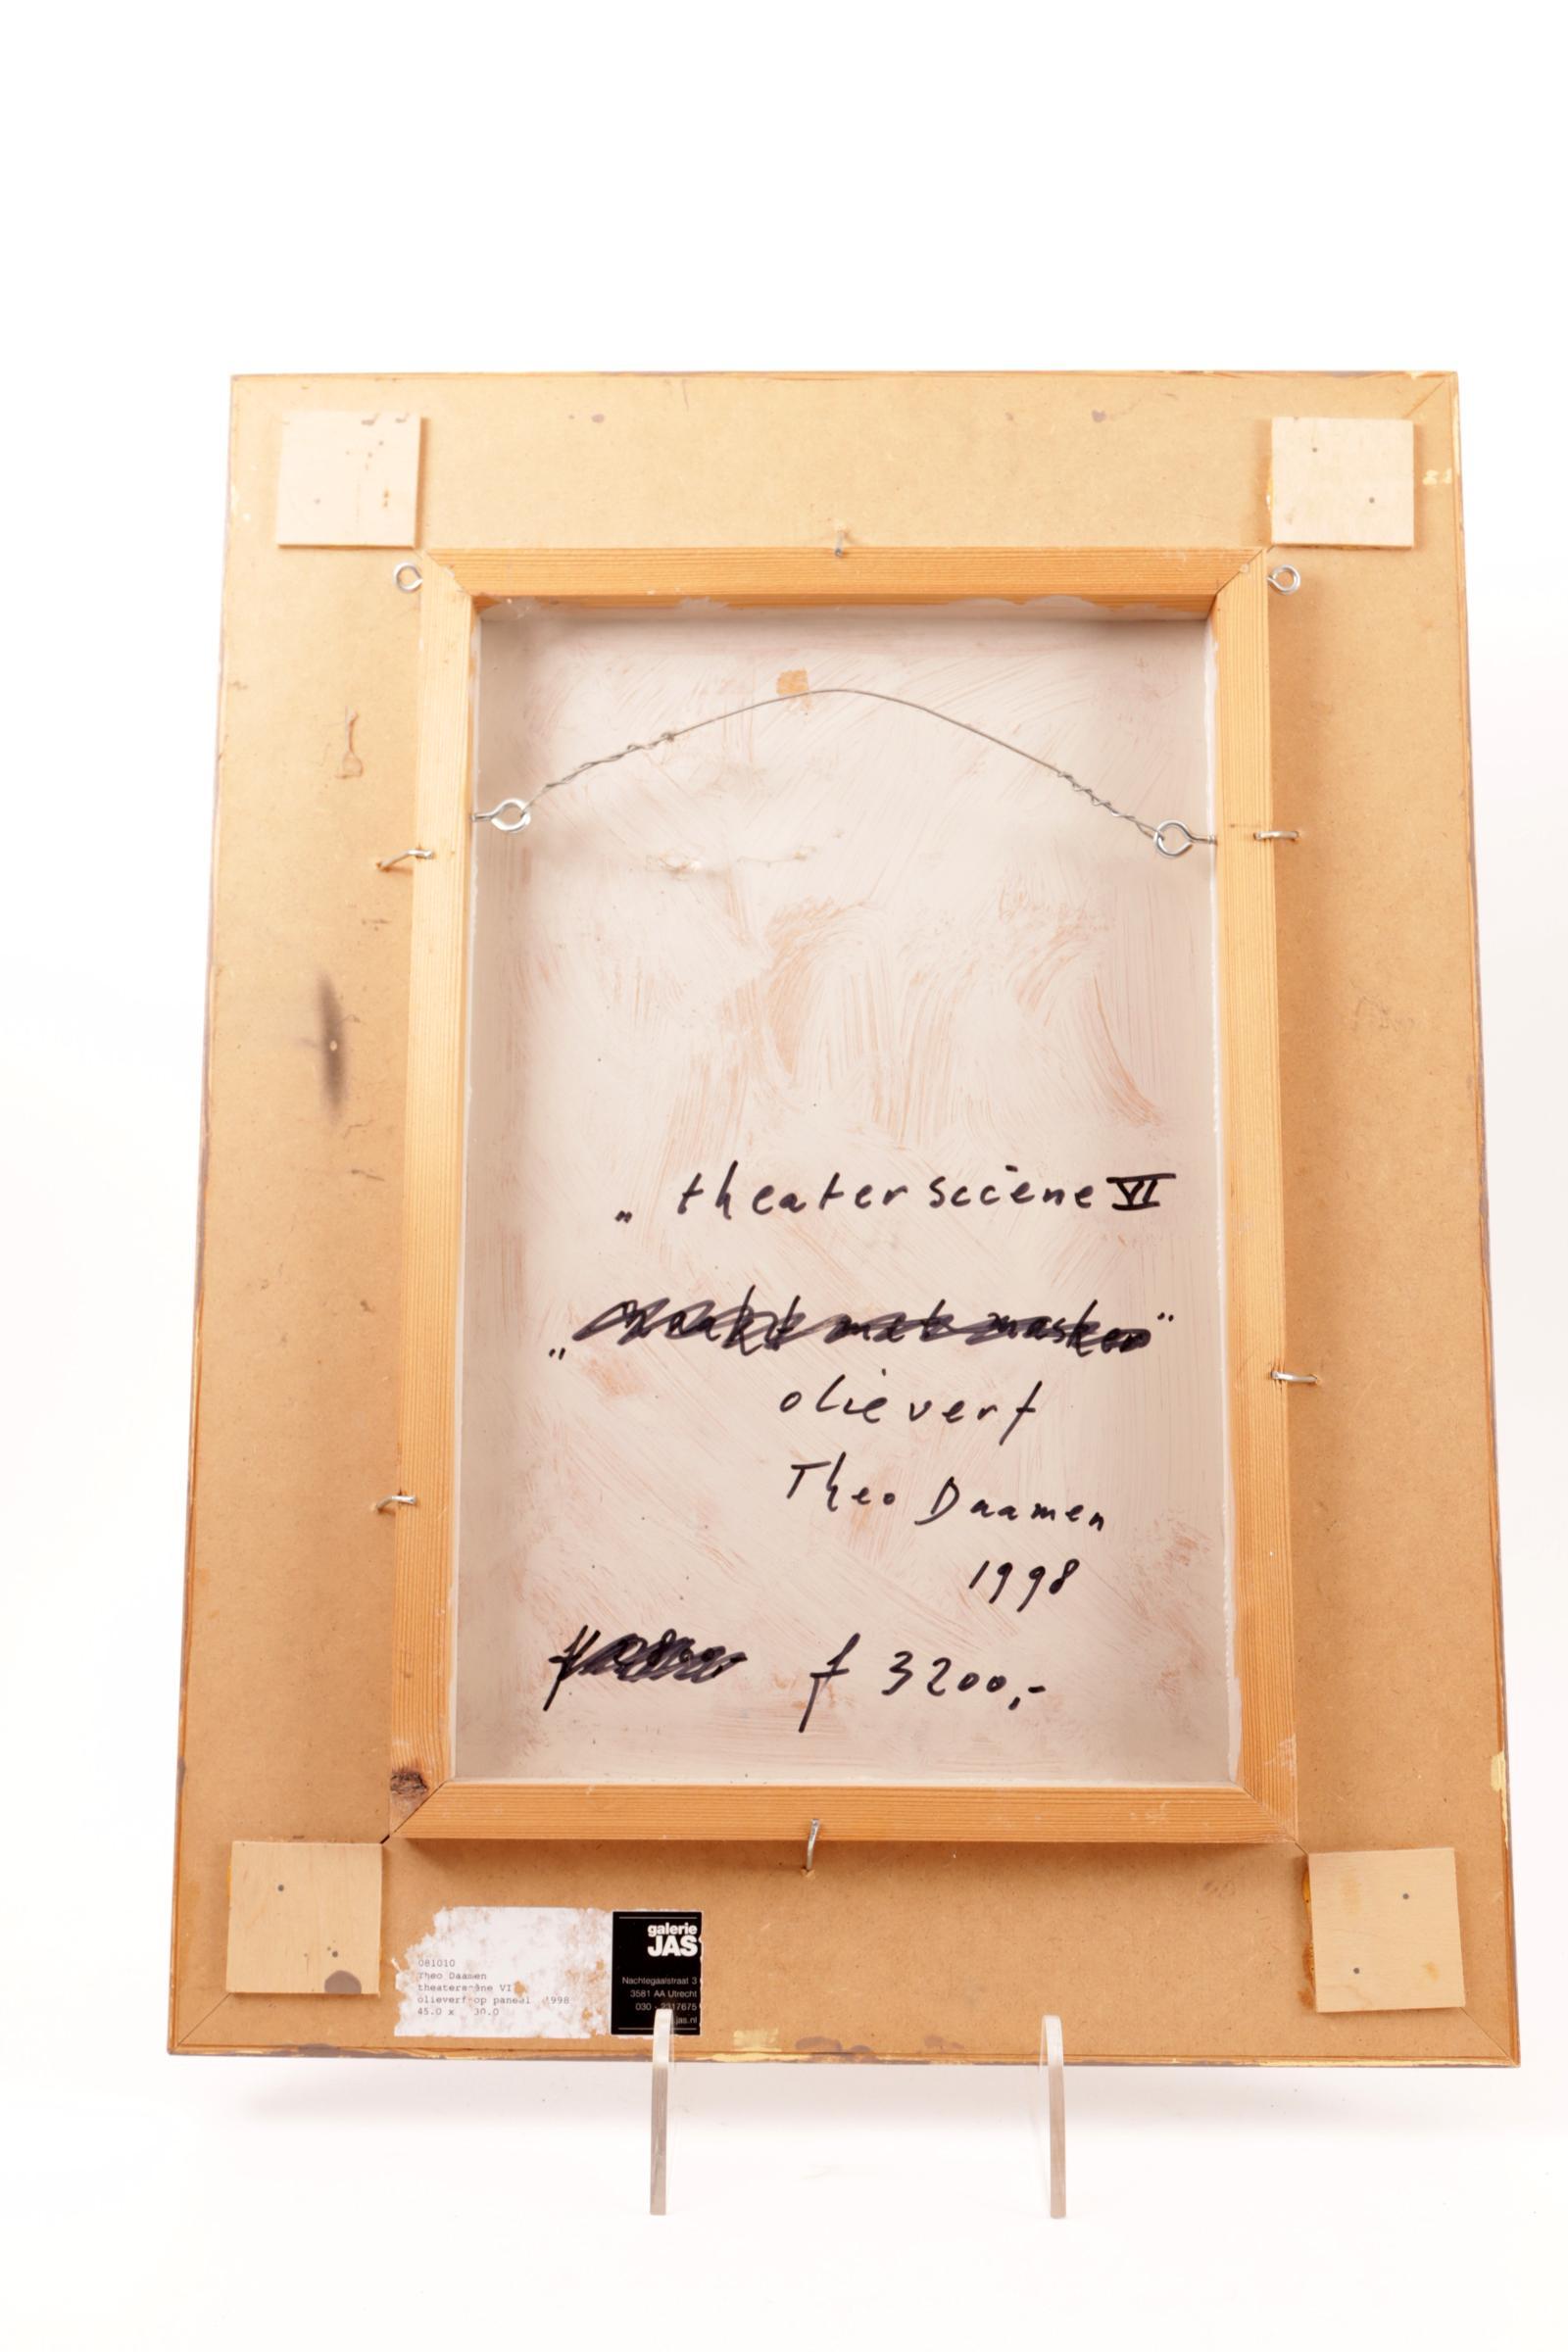 „ theater sccène VI
„ naakt met masker "
olieverf
Theo Daamen
1998
f 3200,-
081010
Theo Daamen
theaterscène VI
olieverf op paneel 1998
45.0 x 30.0
galerie
JAS
Nachtegaalstraat 3
3581 AA Utrecht
030 - 2317675
jas.nl